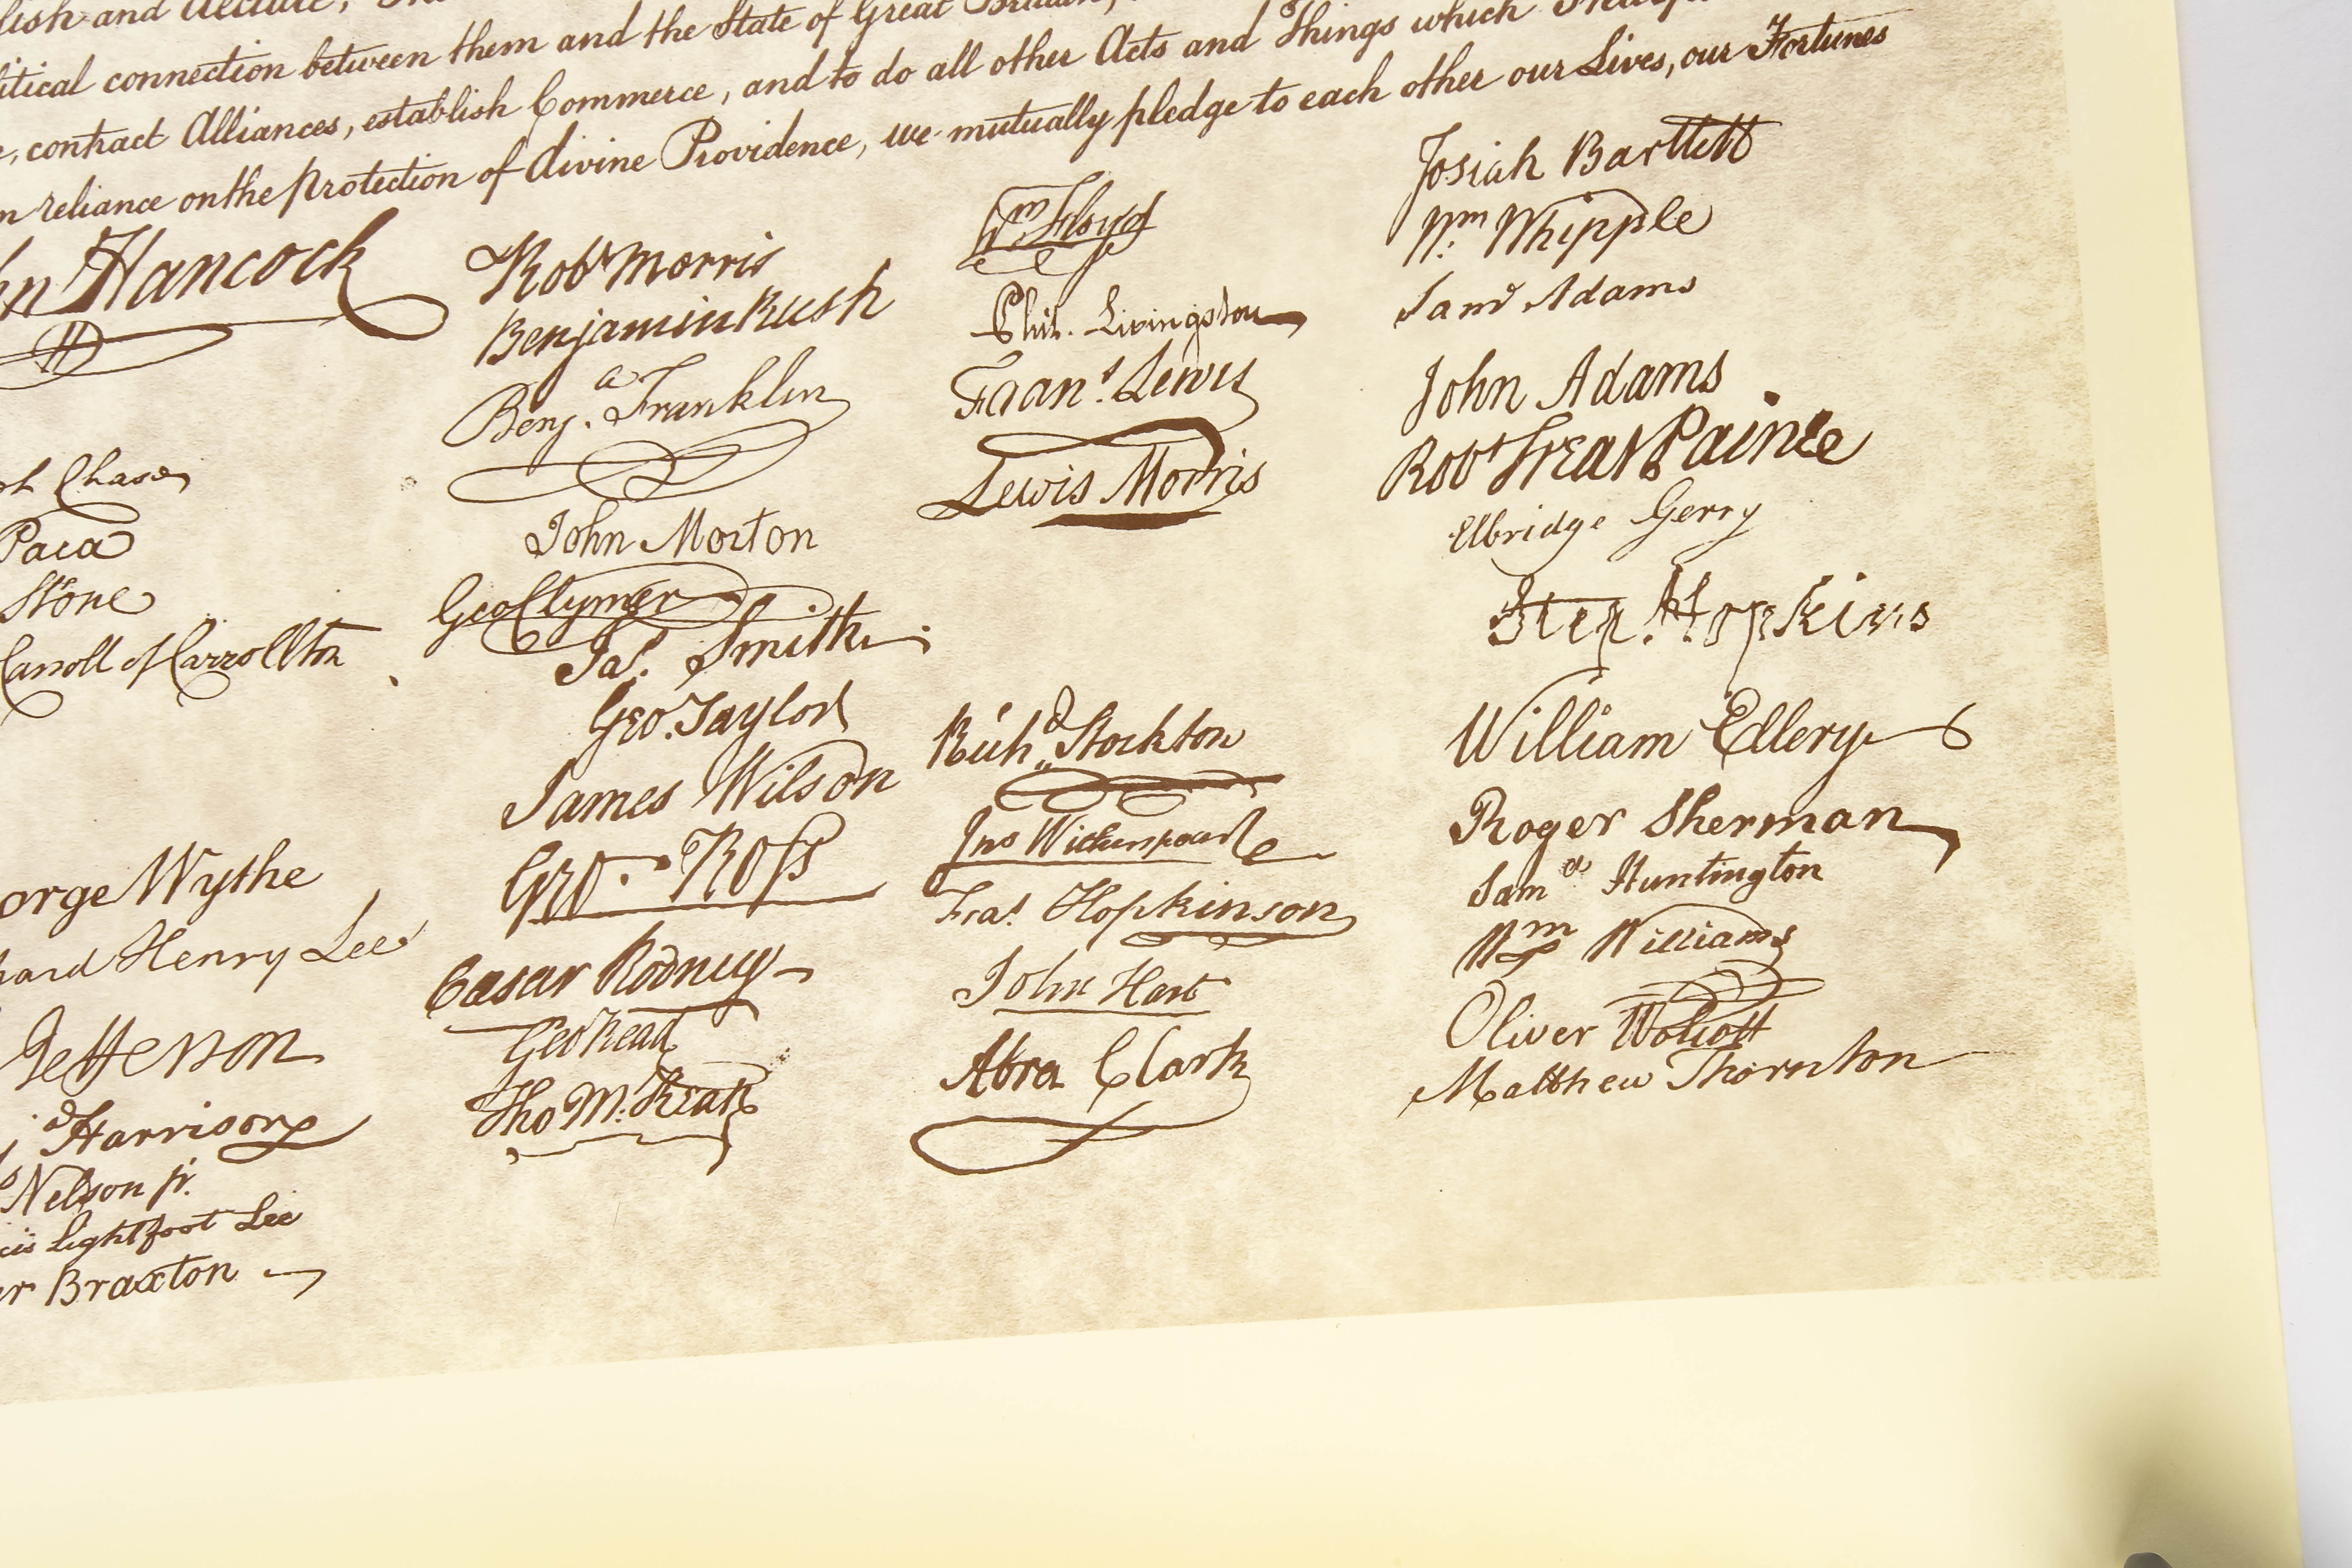 lish and
litical connection between them and the State of Great Britain,
, contract Alliances, establish Commerce, and to do all other Acts and Things which
n reliance on the protection of divine Providence, we mutually pledge to each other our Lives, our Fortunes
hn Hancock
Chase
Paca
Stone
Carroll of Carrollton
orge Wythe
hard Henry Lee
Jefferson
Harrison
Nelson jr.
cis Lightfoot Lee
er Braxton
Robt Morris
Benjamin Rush
Benja. Franklin
John Morton
Geo Clymer
Jas. Smith.
Geo. Taylor
James Wilson
Geo. Ross
Caesar Rodney
Geo Read
Tho M:Kean
Wm Floyd
Phil. Livingston
Frans. Lewis
Lewis Morris
Richd. Stockton
Jno Witherspoon
Fras. Hopkinson
John Hart
Abra Clark
Josiah Bartlett
Wm: Whipple
Saml Adams
John Adams
Robt Treat Paine
Elbridge Gerry
Step. Hopkins
William Ellery
Roger Sherman
Saml Huntington
Wm Williams
Oliver Wolcott
Matthew Thornton